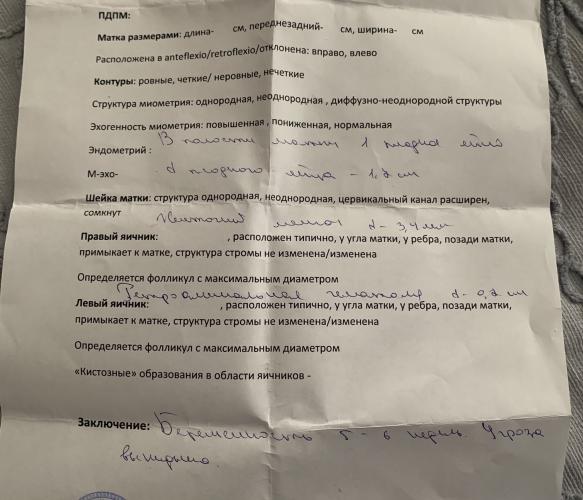 ПДПМ:
Матка размерами: длина- см, переднезадний- см, ширина- см
Расположена в anteflexio/retroflexio/отклонена: вправо, влево
Контуры: ровные, четкие/ неровные, нечеткие
Структура миометрия: однородная, неоднородная , диффузно-неоднородной структуры
Эхогенность миометрия: повышенная , пониженная, нормальная
В полости матки 1 плодное яйцо
Эндометрий :
М-эхо- d плодного яйца - 1,2 см
Шейка матки: структура однородная, неоднородная, цервикальный канал расширен,
сомкнут
Желточный мешок d- 3,4 мм
Правый яичник: , расположен типично, у угла матки, у ребра, позади матки,
примыкает к матке, структура стромы не изменена/изменена
Определяется фолликул с максимальным диаметром
гематома d- 0,2 см
Левый яичник: , расположен типично, у угла матки, у ребра, позади матки,
примыкает к матке, структура стромы не изменена/изменена
Определяется фолликул с максимальным диаметром
«Кистозные» образования в области яичников -
Заключение: Беременность 5-6 недель. Угроза
выкидыша.